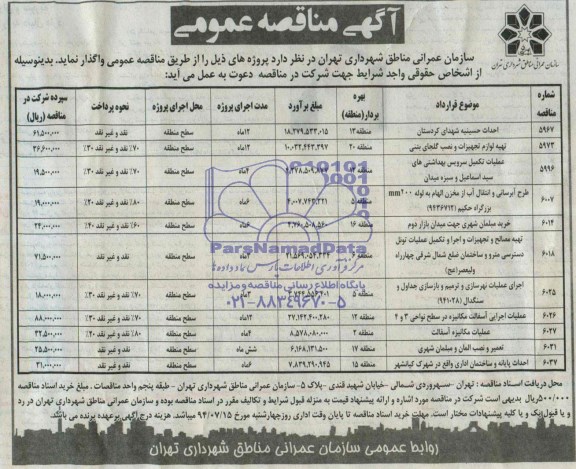 آگهی مناقصه عمومی
سازمان عمرانی مناطق شهرداری تهران
سازمان عمرانی مناطق شهرداری تهران در نظر دارد پروژه های ذیل را از طریق مناقصه عمومی واگذار نماید. بدینوسیله
از اشخاص حقوقی واجد شرایط جهت شرکت در مناقصه دعوت به عمل می آید:
شماره مناقصه | موضوع قرارداد | بهره بردار(منطقه) | مبلغ برآورد | مدت اجرای پروژه | محل اجرای پروژه | نحوه پرداخت | سپرده شرکت در مناقصه (ریال)
۵۹۶۷ | احداث حسینیه شهدای کردستان | منطقه۱۳ | ۱۸,۲۷۹,۵۳۳,۰۱۵ | ۱۲ماه | سطح منطقه | نقد و غیر نقد | ۶۱,۵۰۰,۰۰۰
۵۹۷۳ | تهیه لوازم تجهیزات و نصب گلجای بتنی | منطقه ۲۰ | ۱۰,۰۳۲,۴۴۳,۳۹۷ | ۱۲ماه | سطح منطقه | ۷۰٪ نقد و غیر نقد ۳۰٪ | ۳۶,۶۰۰,۰۰۰
۵۹۹۶ | عملیات تکمیل سرویس بهداشتی های سید اسماعیل و سبزه میدان | سطح منطقه | ۷۰٪ نقد و غیر نقد ۳۰٪ | ۱۹,۵۰۰,۰۰۰
۶۰۰۷ | طرح آبرسانی و انتقال آب از مخزن الهام به لوله ۲۰۰mm بزرگراه حکیم (۹۴۳۶۷۱۲) | منطقه ۵ | ۴,۰۰۷,۷۶۳,۲۲۱ | ۶ماه | سطح منطقه | ۸۰٪ نقد و غیر نقد ۲۰٪ | ۱۹,۰۰۰,۰۰۰
۶۰۱۴ | خرید مبلمان شهری جهت میدان بازار دوم | منطقه ۱۶ | ۶ماه | سطح منطقه | ۶۰٪ نقد و غیر نقد ۴۰٪ | ۲۴,۰۰۰,۰۰۰
۶۰۱۸ | تهیه مصالح و تجهیزات و اجرا و تکمیل عملیات تونل دسترسی مترو و ساختمان ضلع شمال شرقی چهارراه ولیعصر(عج) | منطقه ۶ | سطح منطقه | نقد و غیر نقد | ۷۱,۵۰۰,۰۰۰
۶۰۲۵ | اجرای عملیات نهرسازی و ترمیم و بازسازی جداول و سنگدال (۹۴۱۰۲۸) | منطقه ۵ | سطح منطقه | ۷۰٪ نقد و غیر نقد ۳۰٪ | ۱۸,۰۰۰,۰۰۰
۶۰۲۶ | عملیات اجرایی آسفالت مکانیزه در سطح نواحی ۳ و ۴ | منطقه ۱۲ | ۲۷,۱۴۲,۴۰۰,۲۸۰ | ۱۲ماه | سطح منطقه | ۷۰٪ نقد و غیر نقد ۳۰٪ | ۸۸,۰۰۰,۰۰۰
۶۰۲۷ | عملیات مکانیزه آسفالت | منطقه ۲ | ۸,۵۷۸,۰۸۰,۰۰۰ | سطح منطقه | ۸۰٪ نقد و غیر نقد ۲۰٪ | ۳۲,۵۰۰,۰۰۰
۶۰۳۱ | تعمیر و نصب المان و مبلمان شهری | منطقه ۱۷ | ۶,۱۶۸,۱۳۱,۵۰۰ | شش ماه | سطح منطقه | نقد و غیر نقد | ۲۵,۵۰۰,۰۰۰
۶۰۳۷ | احداث پایانه و ساختمان اداری واقع در شهرک کیانشهر | منطقه ۱۵ | ۷,۸۳۹,۲۹۰,۹۴۵ | ۶ماه | سطح منطقه | نقد و غیر نقد | ۳۱,۰۰۰,۰۰۰
ParsNamadData
پایگاه اطلاع رسانی مناقصه و مزایده
۰۲۱-۸۸۳۴۹۶۷۰-۵
محل دریافت اسناد مناقصه : تهران –سهروردی شمالی –خیابان شهید قندی – پلاک ۵- سازمان عمرانی مناطق شهرداری تهران – طبقه پنجم واحد مناقصات. مبلغ خرید اسناد مناقصه
۵۰۰/۰۰۰ریال بدیهی است شرکت در مناقصه مورد اشاره و ارائه پیشنهاد قیمت به منزله قبول شرایط و تکالیف مقرر در اسناد مناقصه بوده و سازمان عمرانی مناطق شهرداری تهران در رد
و یا قبول یک و یا کلیه پیشنهادات مختار است. مهلت خرید اسناد مناقصه تا پایان وقت اداری روزچهارشنبه مورخ ۹۴/۰۷/۱۵ میباشد. هزینه درج آگهی برعهده برنده می باشد.
روابط عمومی سازمان عمرانی مناطق شهرداری تهران